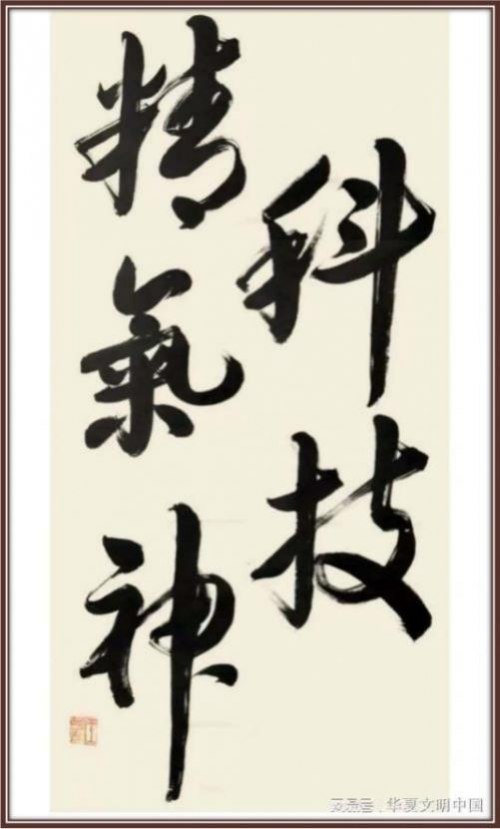 科技
精氣神
华夏文明中国